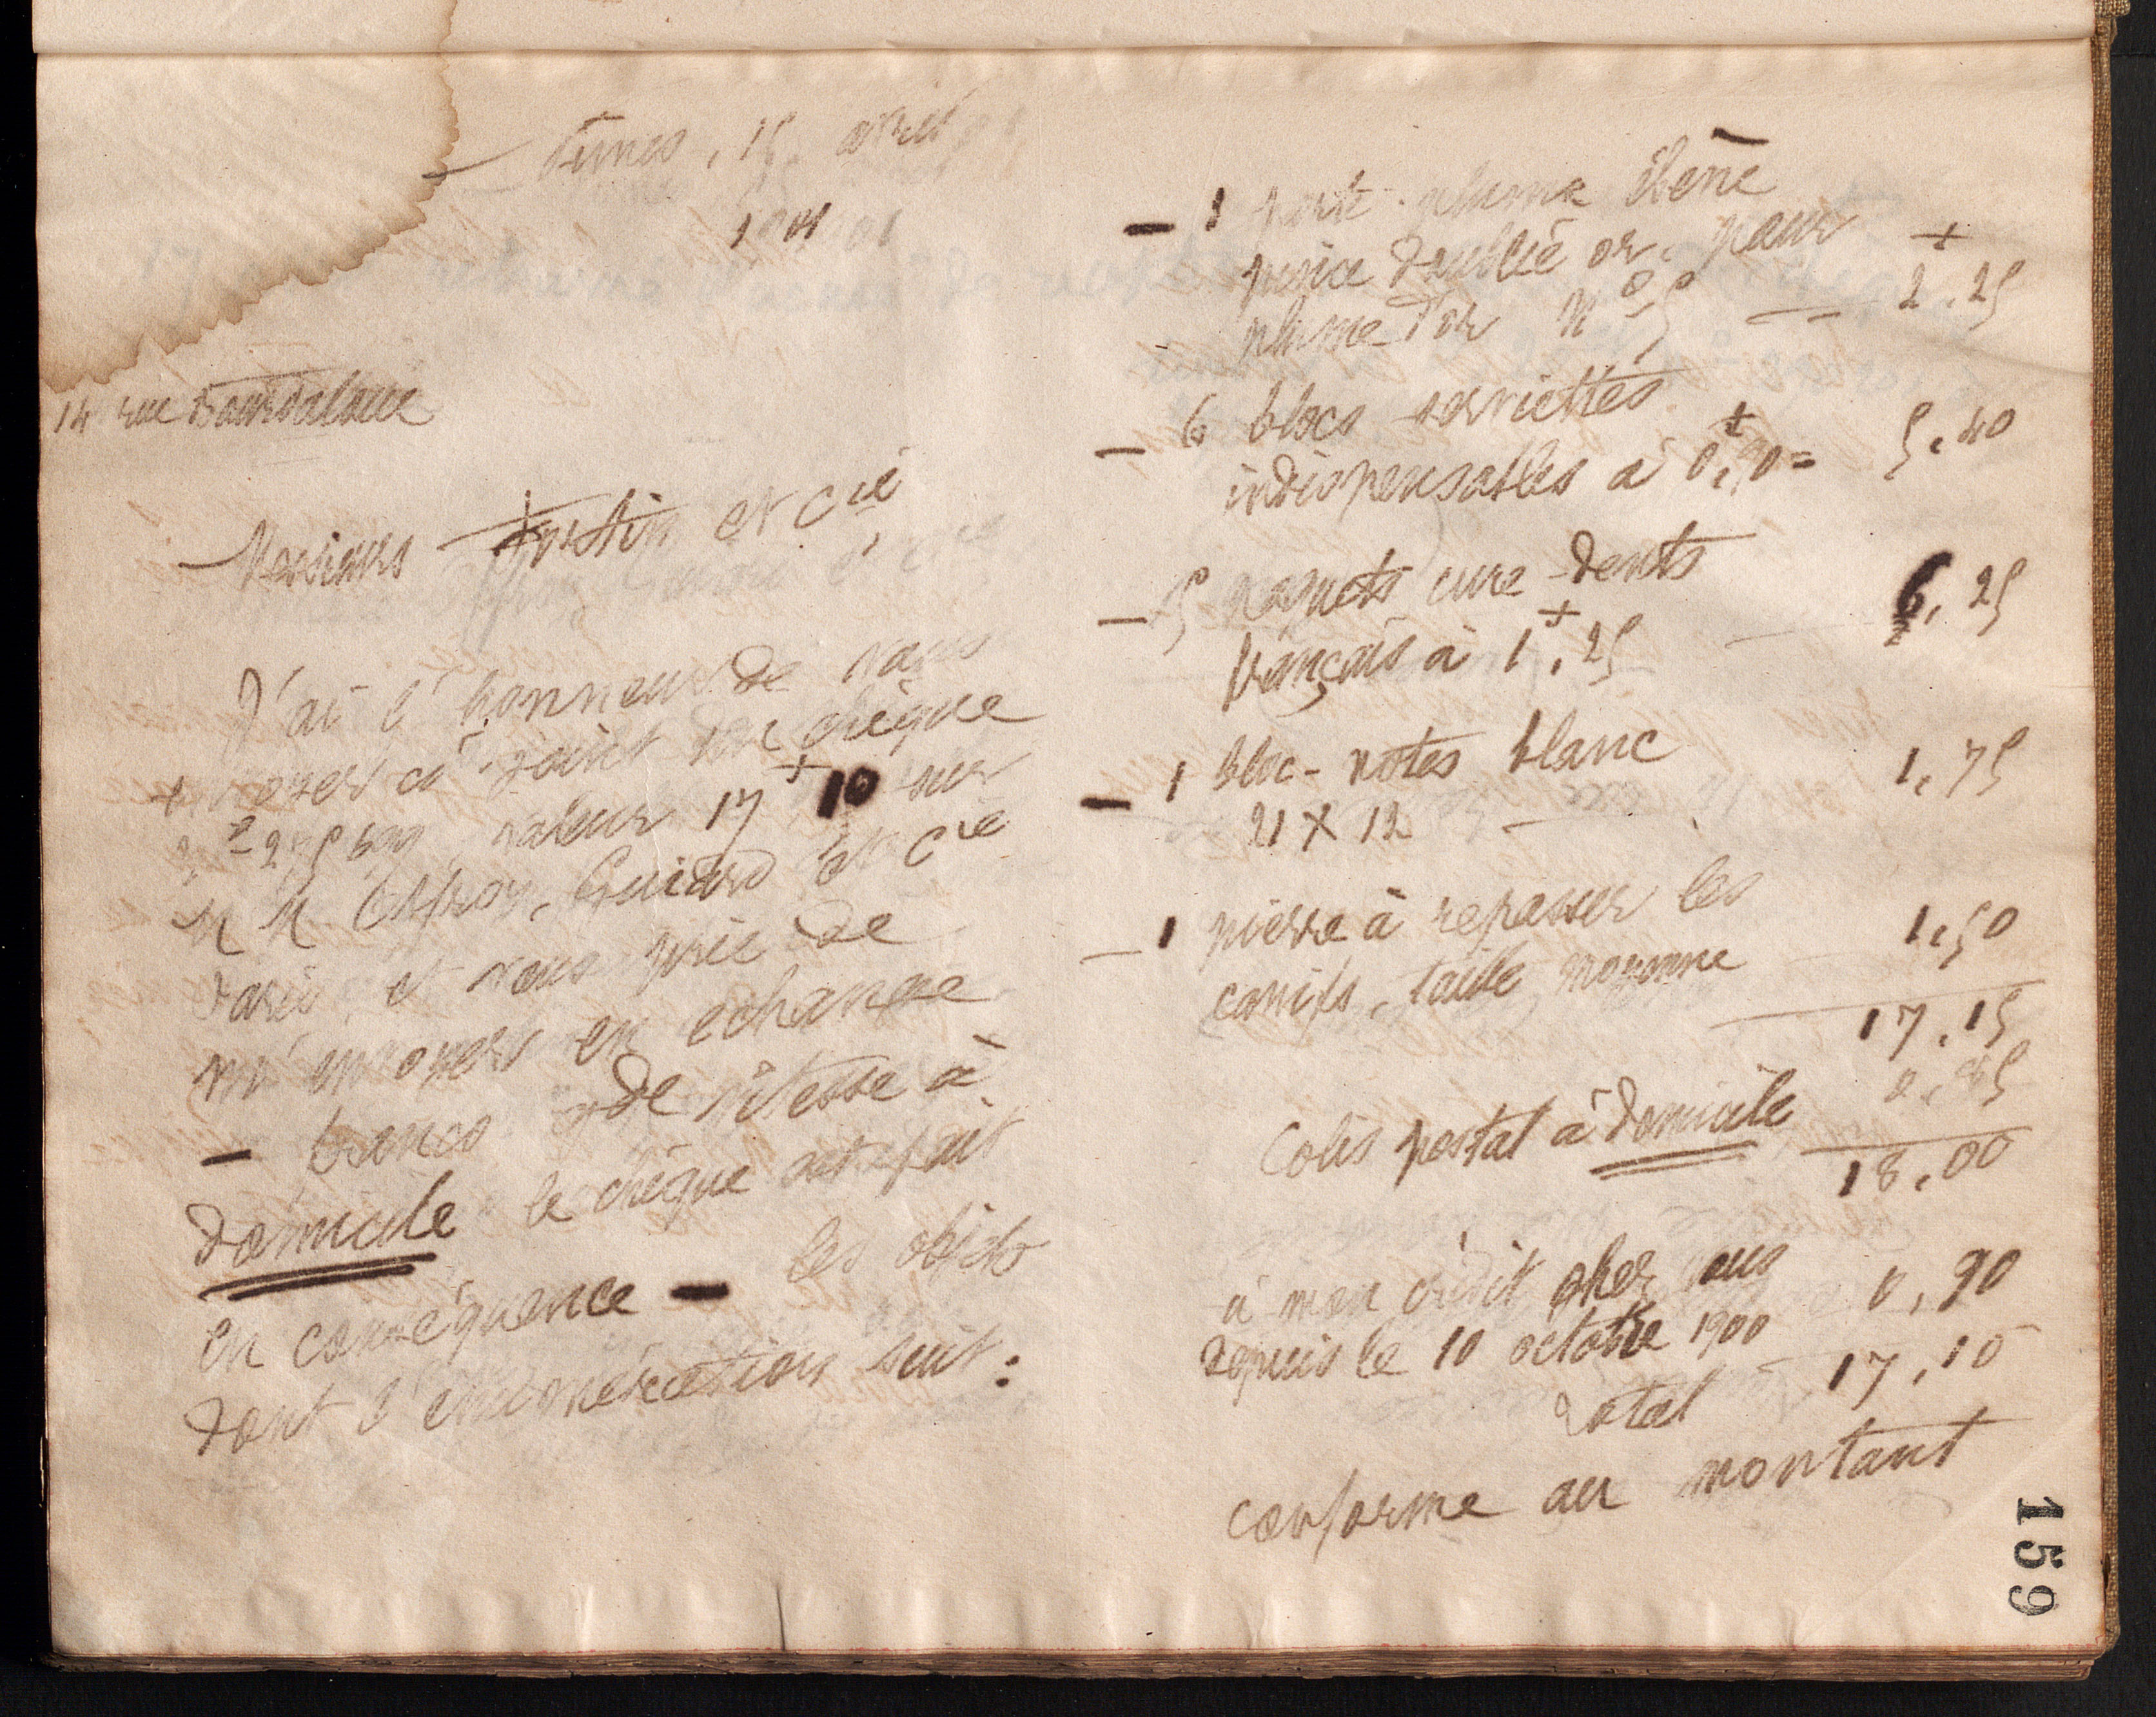 Tunes, 15 avril
1901
14 rue Bourdaloue
Messieurs Fortin et Cie
J'ai l'honneur de vous
envoyer ci-joint un chèque
valeur 17 + 10 sur
M M Offroy, Guiard et Cie
Paris et vous prie de
m'envoyer en échange
— francs gde vitesse à
domicile le chèque est fait
en conséquence — les objets
dont l'énumération suit :
— 1 porte-plume ébène
pince doublée or, pour +
plume d'or N° 5 — 2,25
— 6 blocs serviettes
indispensables à 0,90 = 5,40
— 5 paquets cure-dents
français à 1,25 — 6,25
— 1 bloc-notes blanc
21 X 12 — 1,75
— 1 pierre à repasser les
canifs, taille moyenne 1,50
17,15
Colis postal à domicile 0,85
18,00
à mon crédit chez vous 0,90
depuis le 10 octobre 1900
total 17,10
conforme au montant
159